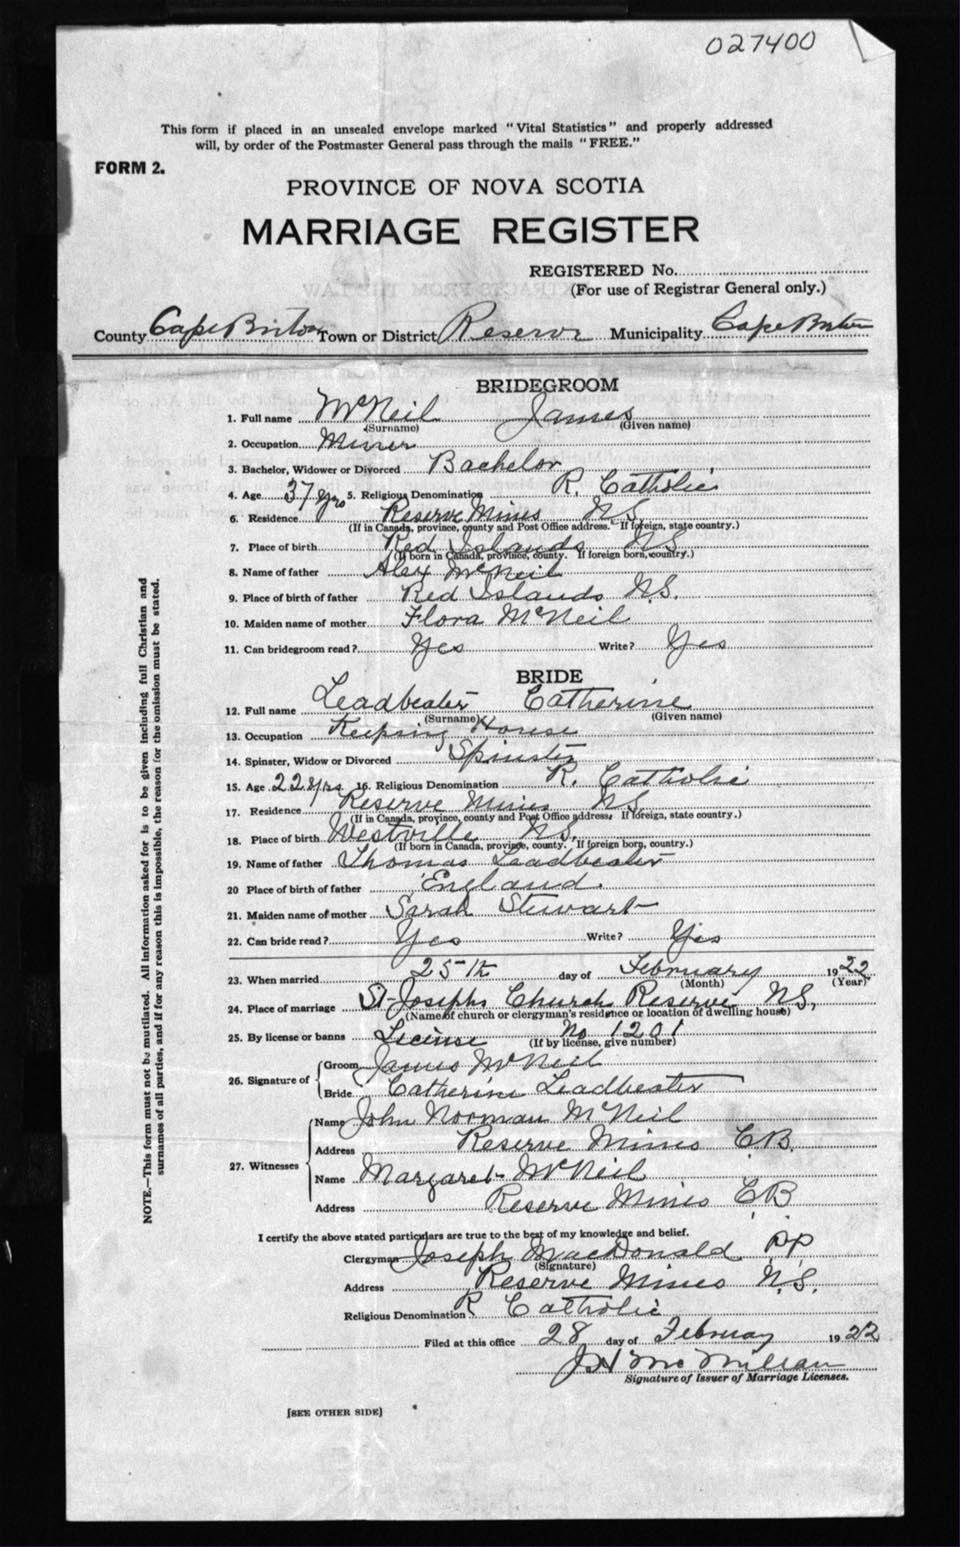 027400
This form if placed in an unsealed envelope marked "Vital Statistics" and properly addressed
will, by order of the Postmaster General pass through the mails "FREE."
FORM 2.
PROVINCE OF NOVA SCOTIA
MARRIAGE REGISTER
REGISTERED No.
(For use of Registrar General only.)
County Cape Breton Town or District Reserve Municipality Cape Breton
BRIDEGROOM
1. Full name McNeil James
(Surname) (Given name)
2. Occupation Miner
3. Bachelor, Widower or Divorced Bachelor
4. Age 37 yrs 5. Religious Denomination R. Catholic
6. Residence Reserve Mines N.S.
(If in Canada, province, county and Post Office address. If foreign, state country.)
7. Place of birth Red Islands N.S.
(If born in Canada, province, county. If foreign born, country.)
8. Name of father Alex McNeil
9. Place of birth of father Red Islands N.S.
10. Maiden name of mother Flora McNeil
11. Can bridegroom read? Yes Write? Yes
BRIDE
12. Full name Leadbeater Catherine
(Surname) (Given name)
13. Occupation Keeping House
14. Spinster, Widow or Divorced Spinster
15. Age 22 yrs 16. Religious Denomination R. Catholic
17. Residence Reserve Mines N.S.
(If in Canada, province, county and Post Office address. If foreign, state country.)
18. Place of birth Westville N.S.
(If born in Canada, province, county. If foreign born, country.)
19. Name of father Thomas Leadbeater
20 Place of birth of father England.
21. Maiden name of mother Sarah Stewart
22. Can bride read? Yes Write? Yes
23. When married 25th day of February 1922
(Month) (Year)
24. Place of marriage St Josephs Church Reserve N.S.
(Name of church or clergyman's residence or location of dwelling house)
25. By license or banns License No 1201
(If by license, give number)
26. Signature of Groom James McNeil
Bride Catherine Leadbeater
27. Witnesses Name John Norman McNeil
Address Reserve Mines C.B.
Name Margaret McNeil
Address Reserve Mines C.B
I certify the above stated particulars are true to the best of my knowledge and belief.
Clergyman Joseph MacDonald PP
(Signature)
Address Reserve Mines N.S.
Religious Denomination R Catholic
Filed at this office 28 day of February 1922
J H McMillan
Signature of Issuer of Marriage Licenses.
[SEE OTHER SIDE]
NOTE.—This form must not be mutilated. All information asked for is to be given including full Christian and
surnames of all parties, and if for any reason this is impossible, the reason for the omission must be stated.